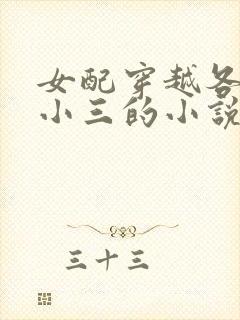 女配穿越各
小三的小說
三十三